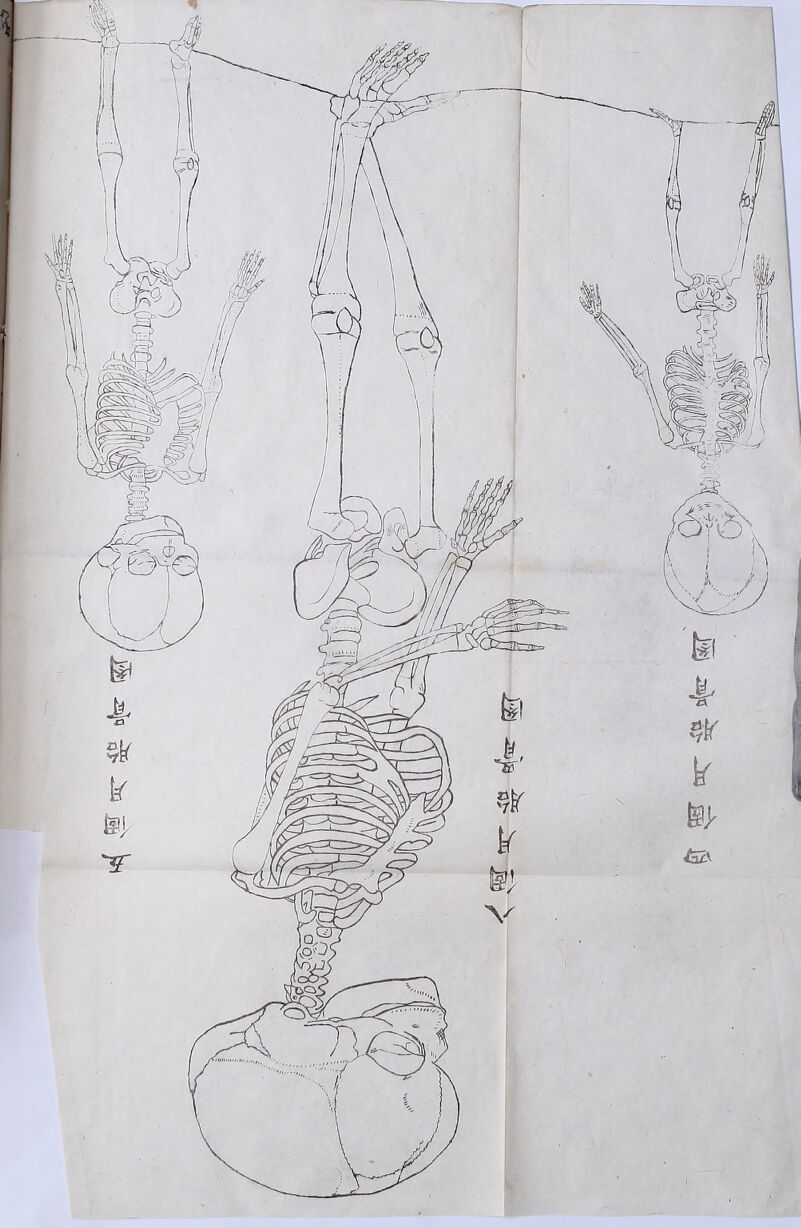 五個月胎骨圖
八個月胎骨圖
四個月胎骨圖